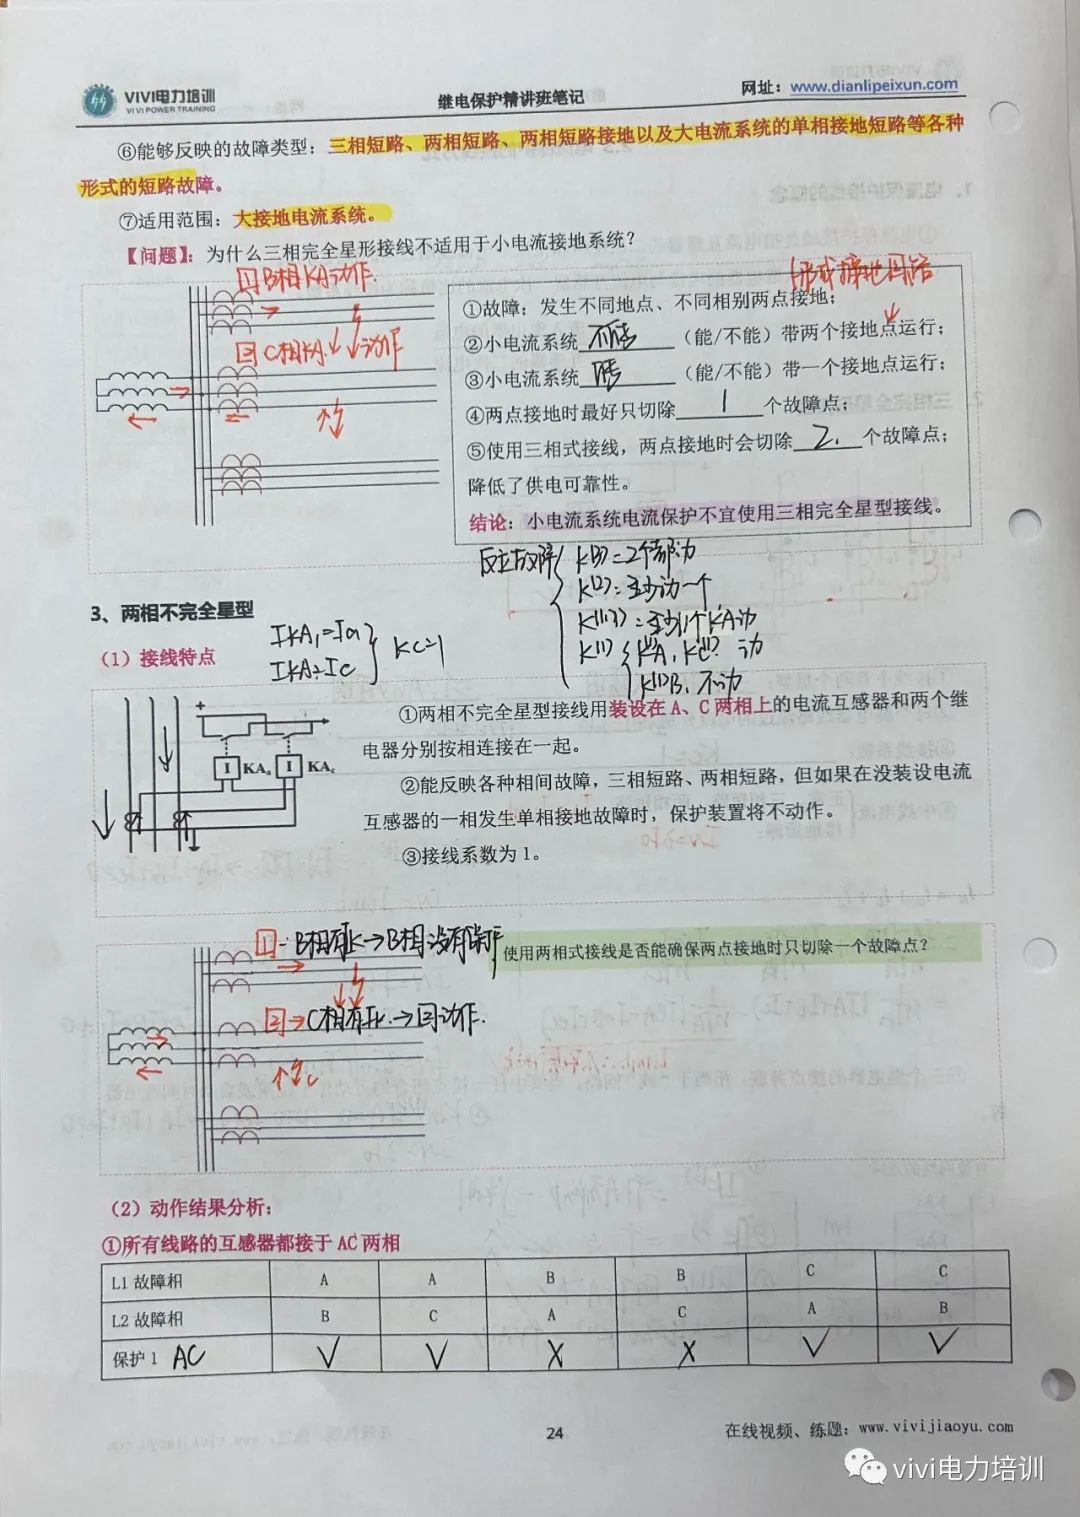 VIVI电力培训
VIVI POWER TRAINING
继电保护精讲班笔记
网址：www.dianlipeixun.com
⑥能够反映的故障类型：三相短路、两相短路、两相短路接地以及大电流系统的单相接地短路等各种
形式的短路故障。
⑦适用范围：大接地电流系统。
【问题】：为什么三相完全星形接线不适用于小电流接地系统？
1 B相KA动作.
2 C相KA. 动作
形成接地回路
①故障：发生不同地点、不同相别两点接地；
②小电流系统 不能 （能/不能）带两个接地点运行；
③小电流系统 能 （能/不能）带一个接地点运行；
④两点接地时最好只切除 1 个故障点；
⑤使用三相式接线，两点接地时会切除 2. 个故障点；
降低了供电可靠性。
结论：小电流系统电流保护不宜使用三相完全星型接线。
反应故障 K(3)=2个都动
K(2)：至少动一个
K(1,1)=至少1个KA动
K(1) K(1)A、K(1)C 动
K(1)B、不动
3、两相不完全星型
（1）接线特点
IKA1=Ia
IKA2=Ic
KC=1
+
I KAa I KAc
①两相不完全星型接线用装设在 A、C 两相上的电流互感器和两个继
电器分别按相连接在一起。
②能反映各种相间故障，三相短路、两相短路，但如果在没装设电流
互感器的一相发生单相接地故障时，保护装置将不动作。
③接线系数为 1。
1 B相有Ik→B相没有保护
使用两相式接线是否能确保两点接地时只切除一个故障点？
2→C相有Ik.→2动作.
C
（2）动作结果分析：
①所有线路的互感器都接于 AC 两相
L1 故障相 A A B B C C
L2 故障相 B C A C A B
保护 1 AC √ √ X X √ √
24
在线视频、练题：www.vivijiaoyu.com
vivi电力培训